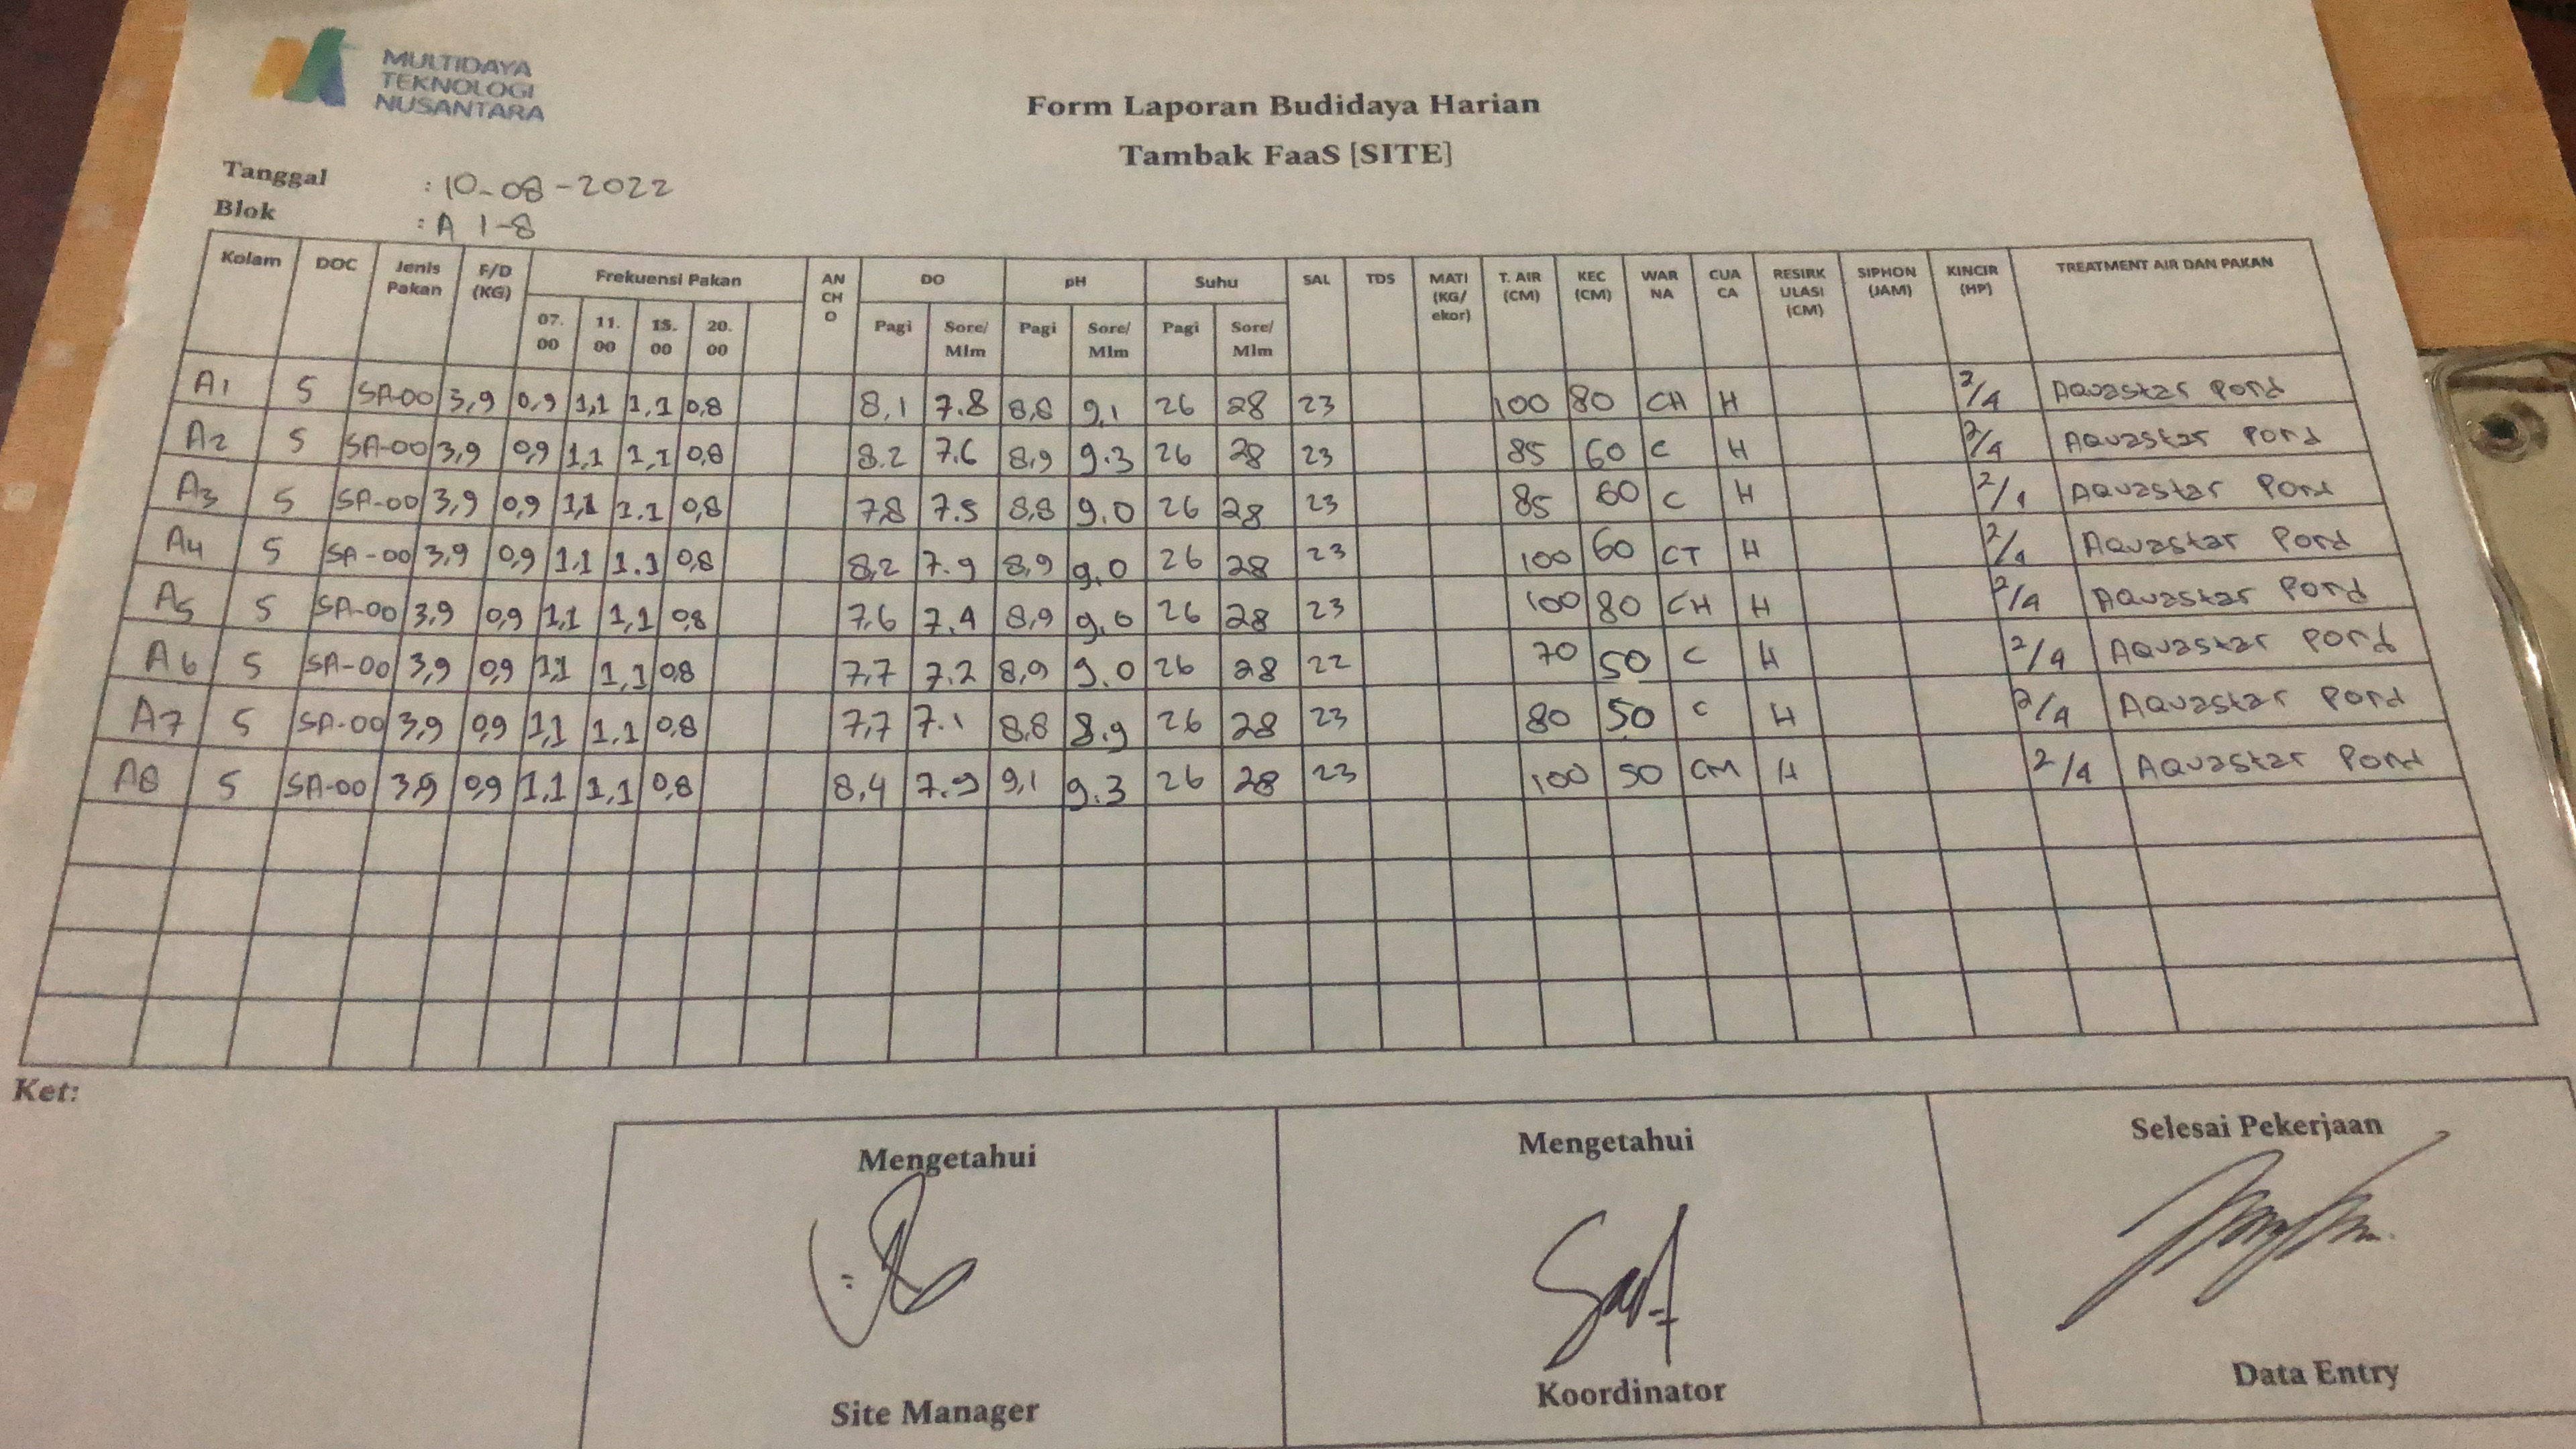 MULTIDAYA
TEKNOLOGI
NUSANTARA
Form Laporan Budidaya Harian
Tambak FaaS [SITE]
Tanggal : 10-08-2022
Blok : A 1-8
Kolam DOC Jenis Pakan F/D (KG) Frekuensi Pakan AN CH O DO pH Suhu SAL TDS MATI (KG/ ekor) T. AIR (CM) KEC (CM) WAR NA CUA CA RESIRK ULASI (CM) SIPHON (JAM) KINCIR (HP) TREATMENT AIR DAN PAKAN
07. 00 11. 00 15. 00 20. 00 Pagi Sore/ Mlm Pagi Sore/ Mlm Pagi Sore/ Mlm
A1 5 SA-00 3,9 0,9 1,1 1,1 0,8 8,1 7.8 8,8 9,1 26 28 23 100 80 CH H 2/4 Aquastar Pond
A2 5 SA-00 3,9 0,9 1,1 1,1 0,8 8.2 7.6 8,9 9.3 26 28 23 85 60 C H 2/4 Aquastar Pond
A3 5 SA-00 3,9 0,9 1,1 1.1 0,8 7,8 7.5 8,8 9.0 26 28 23 85 60 C H 2/4 Aquastar Pond
A4 5 SA-00 3,9 0,9 1,1 1.1 0,8 8,2 7.9 8,9 9.0 26 28 23 100 60 CT H 2/4 Aquastar Pond
A5 5 SA-00 3,9 0,9 1,1 1,1 0,8 7,6 7.4 8,9 9,0 26 28 23 100 80 CH H 2/4 Aquastar Pond
A6 5 SA-00 3,9 0,9 1,1 1,1 0,8 7,7 7.2 8,9 9.0 26 28 22 70 50 C H 2/4 Aquastar Pond
A7 5 SA-00 3,9 0,9 1,1 1,1 0,8 7,7 7.1 8,8 8.9 26 28 23 80 50 C H 2/4 Aquastar Pond
A8 5 SA-00 3,9 0,9 1,1 1,1 0,8 8,4 7.9 9,1 9.3 26 28 23 100 50 CM H 2/4 Aquastar Pond
Ket:
Mengetahui Mengetahui Selesai Pekerjaan
Site Manager Koordinator Data Entry